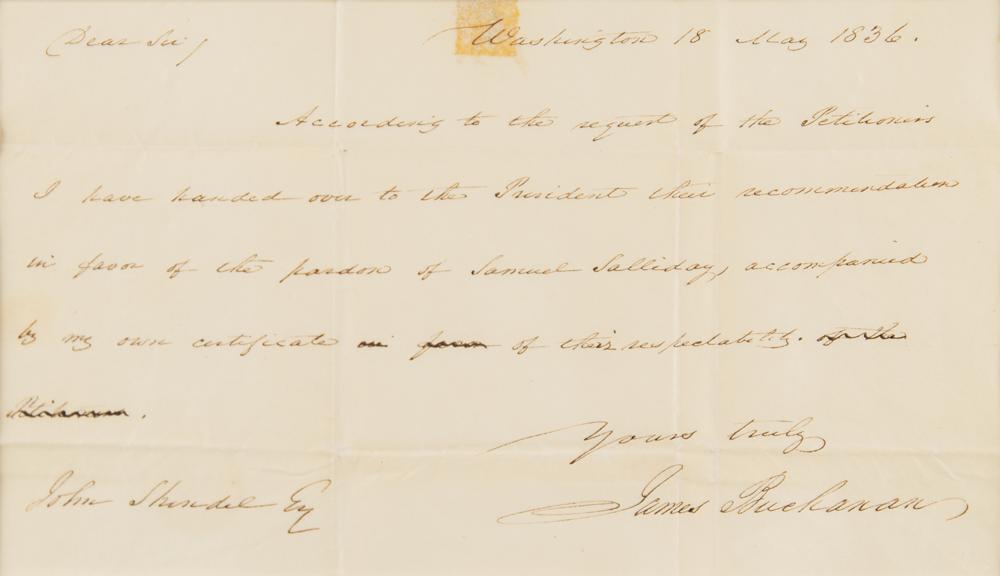 Dear Sir, Washington 18 May 1836.
According to the request of the Petitioners
I have handed over to the President their recommendation
in favor of the pardon of Samuel Salliday, accompanied
by my own certificate in favor of their respectability. of the
Petitioners.
Yours truly
John Shindel Esq James Buchanan